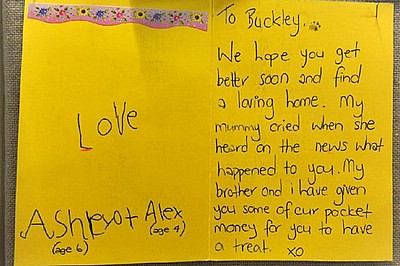 Love
Ashley + Alex
(age 6) (age 4)
To Buckley,
We hope you get
better soon and find
a loving home. My
mummy cried when she
heard on the news what
happened to you. My
brother and i have given
you some of our pocket
money for you to have
a treat. xo